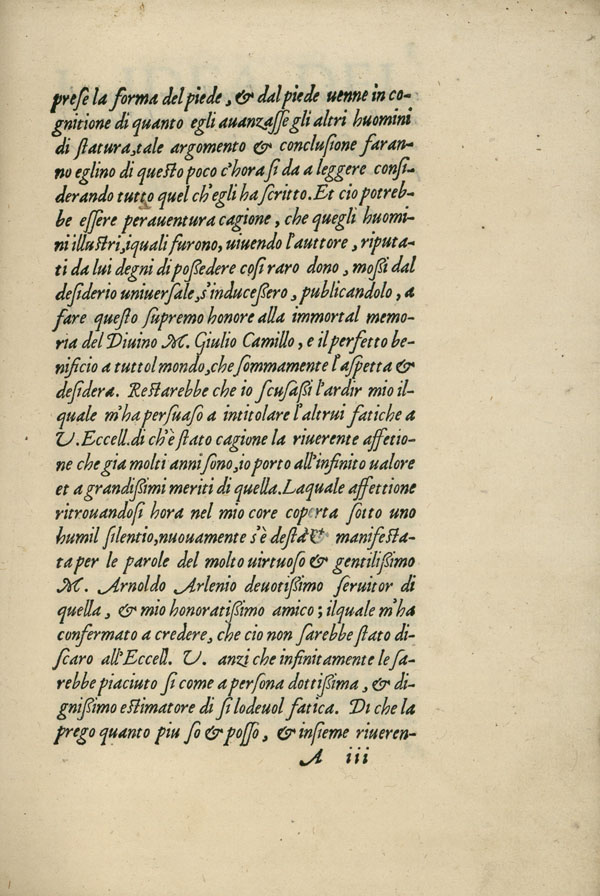 prese la forma del piede, & dal piede uenne in co-
gnitione di quanto egli auanzasse gli altri huomini
di statura, tale argomento & conclusione faran-
no eglino di questo poco c'hora si da a leggere consi-
derando tutto quel ch'egli ha scritto. Et cio potreb-
be essere perauentura cagione, che quegli huomi-
ni illustri, iquali furono, uiuendo l'auttore, riputa-
ti da lui degni di possedere cosi raro dono, mossi dal
desiderio uniuersale, s'inducessero, publicandolo, a
fare questo supremo honore alla immortal memo-
ria del Diuino M. Giulio Camillo, e il perfetto be-
nificio a tutto'l mondo, che sommamente l'aspetta &
desidera. Restarebbe che io scusassi l'ardir mio il-
quale m'ha persuaso a intitolare l'altrui fatiche a
V. Eccell. di ch'è stato cagione la riuerente affetio-
ne che gia molti anni sono, io porto all'infinito ualore
et a grandissimi meriti di quella. Laquale affettione
ritrouandosi hora nel mio core coperta sotto uno
humil silentio, nuouamente s'è desta & manifesta-
ta per le parole del molto uirtuoso & gentilissimo
M. Arnoldo Arlenio deuotissimo seruitor di
quella, & mio honoratissimo amico; ilquale m'ha
confermato a credere, che cio non sarebbe stato di-
scaro all'Eccell. V. anzi che infinitamente le sa-
rebbe piaciuto si come a persona dottissima, & di-
gnissimo estimatore di si lodeuol fatica. Di che la
prego quanto piu so & posso, & insieme riueren-
A iii